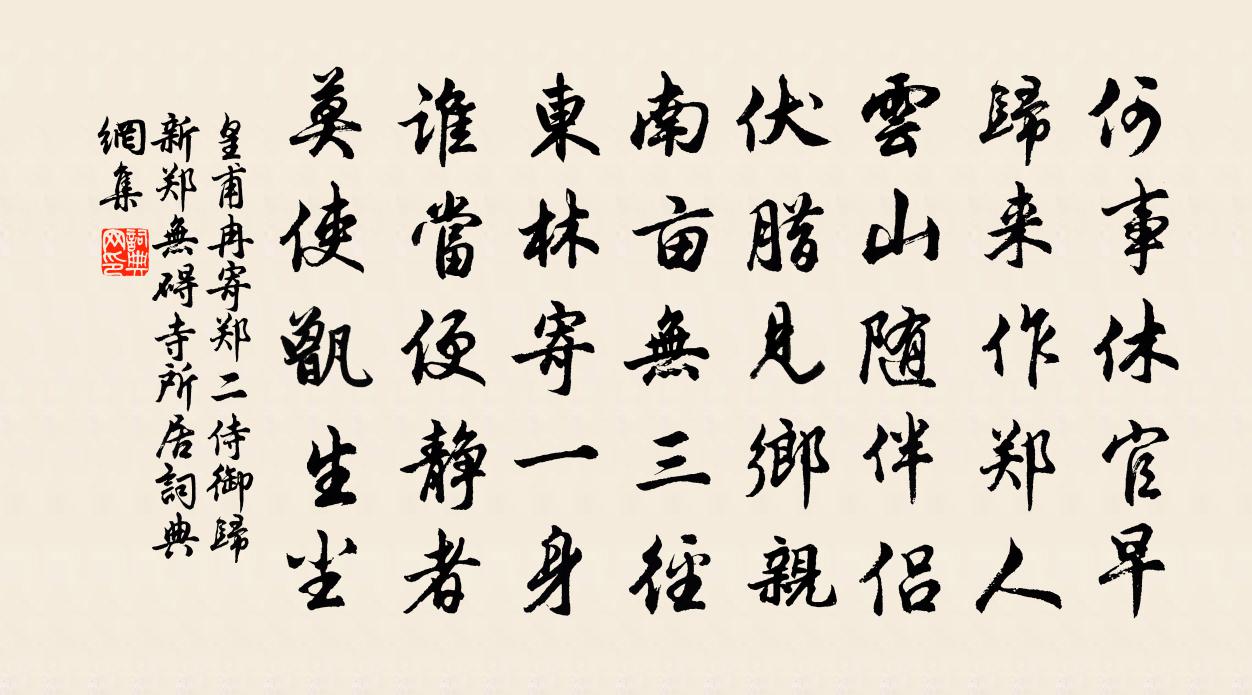 何事休官早
歸来作郑人
雲山随伴侣
伏腊見鄉親
南亩無三徑
東林寄一身
誰當便靜者
莫使甑生尘
皇甫冉寄郑二侍御歸
新郑無碍寺所居詞典
網集
詞典网印